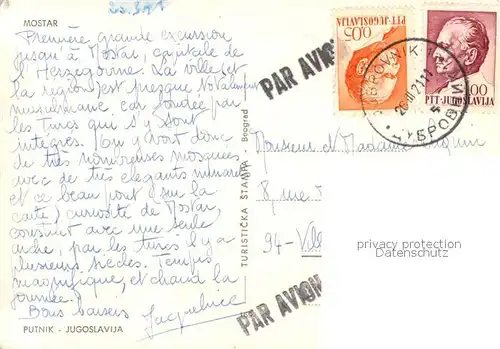 MOSTAR
Première grande excursion
jusqu'à Mostar, capitale de
l'Herzégovine. La ville et
la région est presque totalement
musulmane car fondée par
les Turcs qui s'y sont
intégrés. On y voit donc
de très nombreuses mosquées
avec de très élégants minarets
et ce beau pont sur la
carte, curiosité de Mostar,
construit avec une seule
arche, par les turcs il y a
plusieurs siècles. Temps
magnifique, et chaud la
journée!
Bons baisers Jacqueline
PUTNIK - JUGOSLAVIJA
TURISTIČKA ŠTAMPA - Beograd
PAR AVION
0,05
PTT JUGOSLAVIJA
1,00
PTT-JUGOSLAVIJA
DUBROVNIK
Monsieur et Madame
8, rue
94-
privacy protection
Datenschutz
PAR AVION